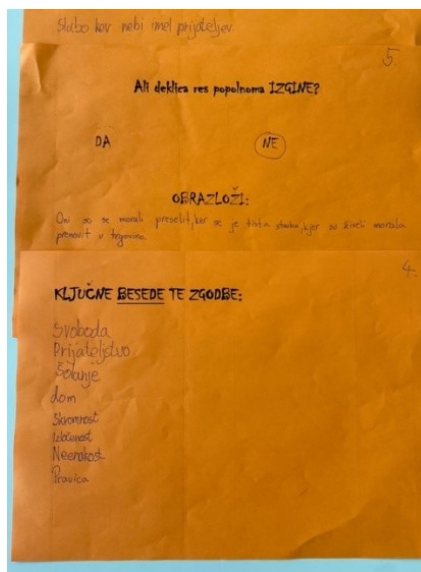 Slabo kov nebi imel prijateljev.
5.
Ali deklica res popolnoma IZGINE?
DA
NE
OBRAZLOŽI:
Oni so se morali preselit, ker se je tista stavba, kjer so živeli morala
prenovit v trgovino.
4.
KLJUČNE BESEDE TE ZGODBE:
Svoboda
Prijateljstvo
Šolanje
dom
Skromnost
Izločenost
Neenakost
Pravica